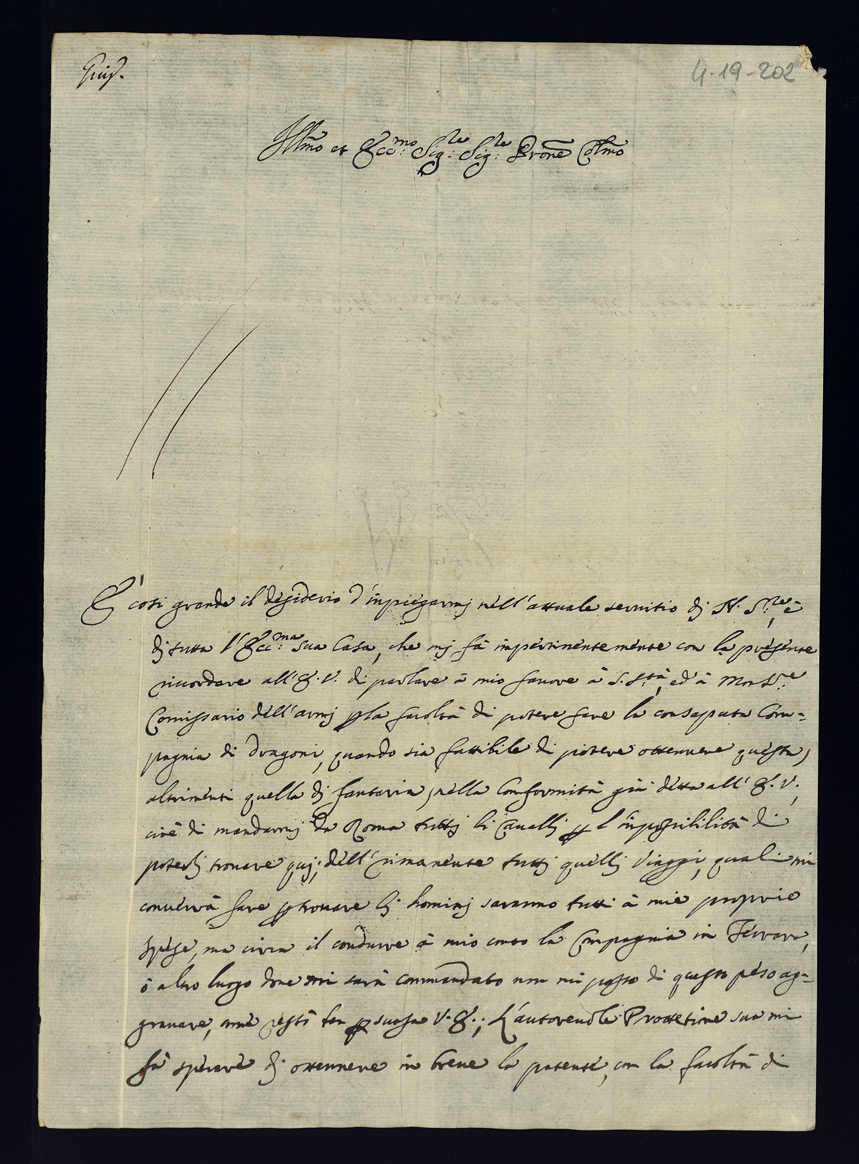 4-19-202
Ill.mo et Ecc.mo Sig.re Sig.re Prone Col.mo
E' così grande il desiderio d'inpiegarmj nell'attuale servitio dj N. S.re e
dj tutta l'Ecc.ma sua Casa, che mj fà inpertinentemente con la presente
riccordare all'E. V. di parlare à mio favore à S. S.tà, ed à Mons.re
Comissario dell'armj p la facoltà di potere fare la consaputa Com=
pagnia di dragoni, quando sia fattibile di potere ottennere questa,
altrimenti quella dj fantaria, nella Conformità già detta all' E. V.,
cioè di mandarmj da Roma tuttj li Cavallj p l'inpossibilità di
poterlj trovare quj; dell'rimanente tuttj quellj viaggi, quali mi
converrà fare p trovare lj hominj saranno tutti à mie proprie
spese, ma circa il condurre à mio costo la Compagnia in Ferrara,
ò altro luogo dove mi sarà commandato non mi posso di questo peso ag=
gravare, come restò ben p suasa V. E.; L'autorevole Prottetione sua mi
fà sperare dj ottennere in breve la patente, con la facoltà di